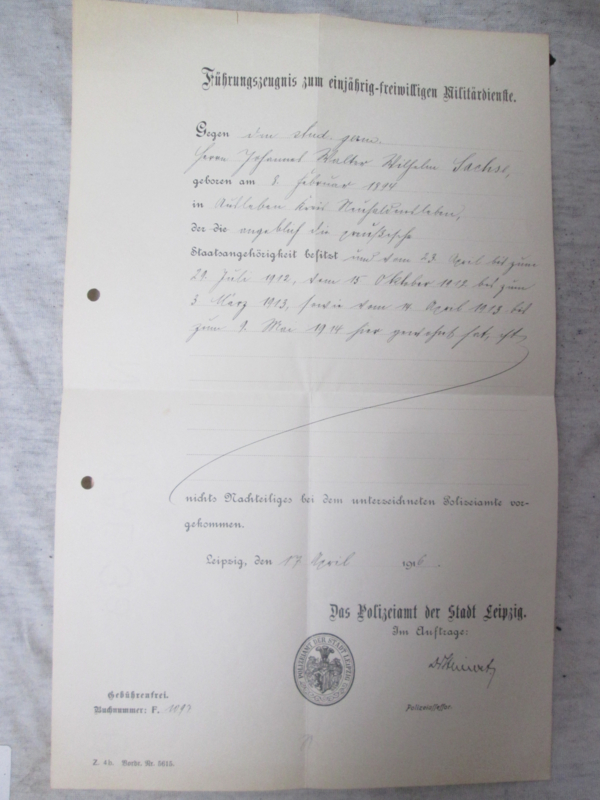 Führungszeugnis zum einjährig-freiwilligen Militärdienste.
Gegen den stud. germ.
Herrn Johannes Walter Wilhelm Sachse,
geboren am 8. Februar 1894
in Kreis Neuhaldensleben,
der die angeblich die preußische
Staatsangehörigkeit besitzt und vom 23. April bis zum
21. Juli 1912, vom 15 Oktober 1912 bis zum
3 März 1913, sowie vom 14 April 1913 bis
zum 9. Mai 1914 hier gewohnt hat, ist
nichts Nachteiliges bei dem unterzeichneten Polizeiamte vor-
gekommen.
Leipzig, den 17 April 1916.
Das Polizeiamt der Stadt Leipzig.
Im Auftrage:
POLIZEIAMT DER STADT LEIPZIG
Gebührenfrei.
Buchnummer: F.
Polizeiassessor.
Z. 4b. Vordr. Nr. 5615.